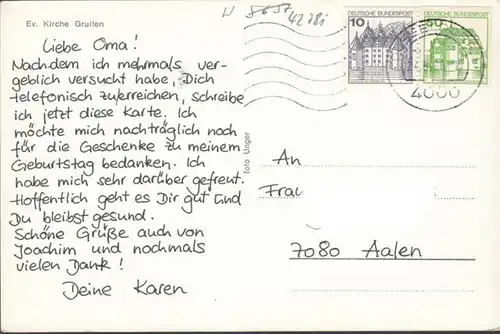 Ev. Kirche Gruiten
Liebe Oma!
Nachdem ich mehrmals ver-
geblich versucht habe, Dich
telefonisch zu erreichen, schreibe
ich jetzt diese Karte. Ich
möchte mich nachträglich noch
für die Geschenke zu meinem
Geburtstag bedanken. Ich
habe mich sehr darüber gefreut.
Hoffentlich geht es Dir gut und
Du bleibst gesund.
Schöne Grüße auch von
Joachim und nochmals
vielen Dank!
Deine Karen
foto Unger
10
DEUTSCHE BUNDESPOST
50
DEUTSCHE BUNDESPOST
4000
An
Frau
7080 Aalen